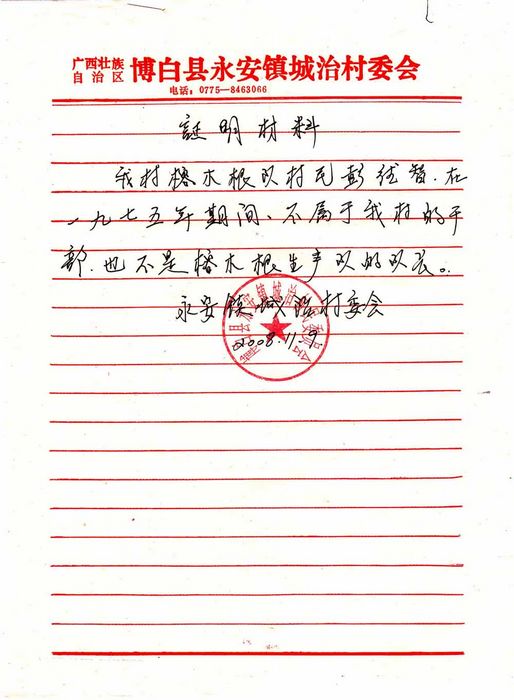 广西壮族
自治区 博白县永安镇城治村委会
电话：0775—8463066
証明材料
我村榕木根队村民彭纯智.在
一九七五年期间、不属于我村的干
部.也不是榕木根生产队的队长。
永安镇城治村委会
2008.11.9